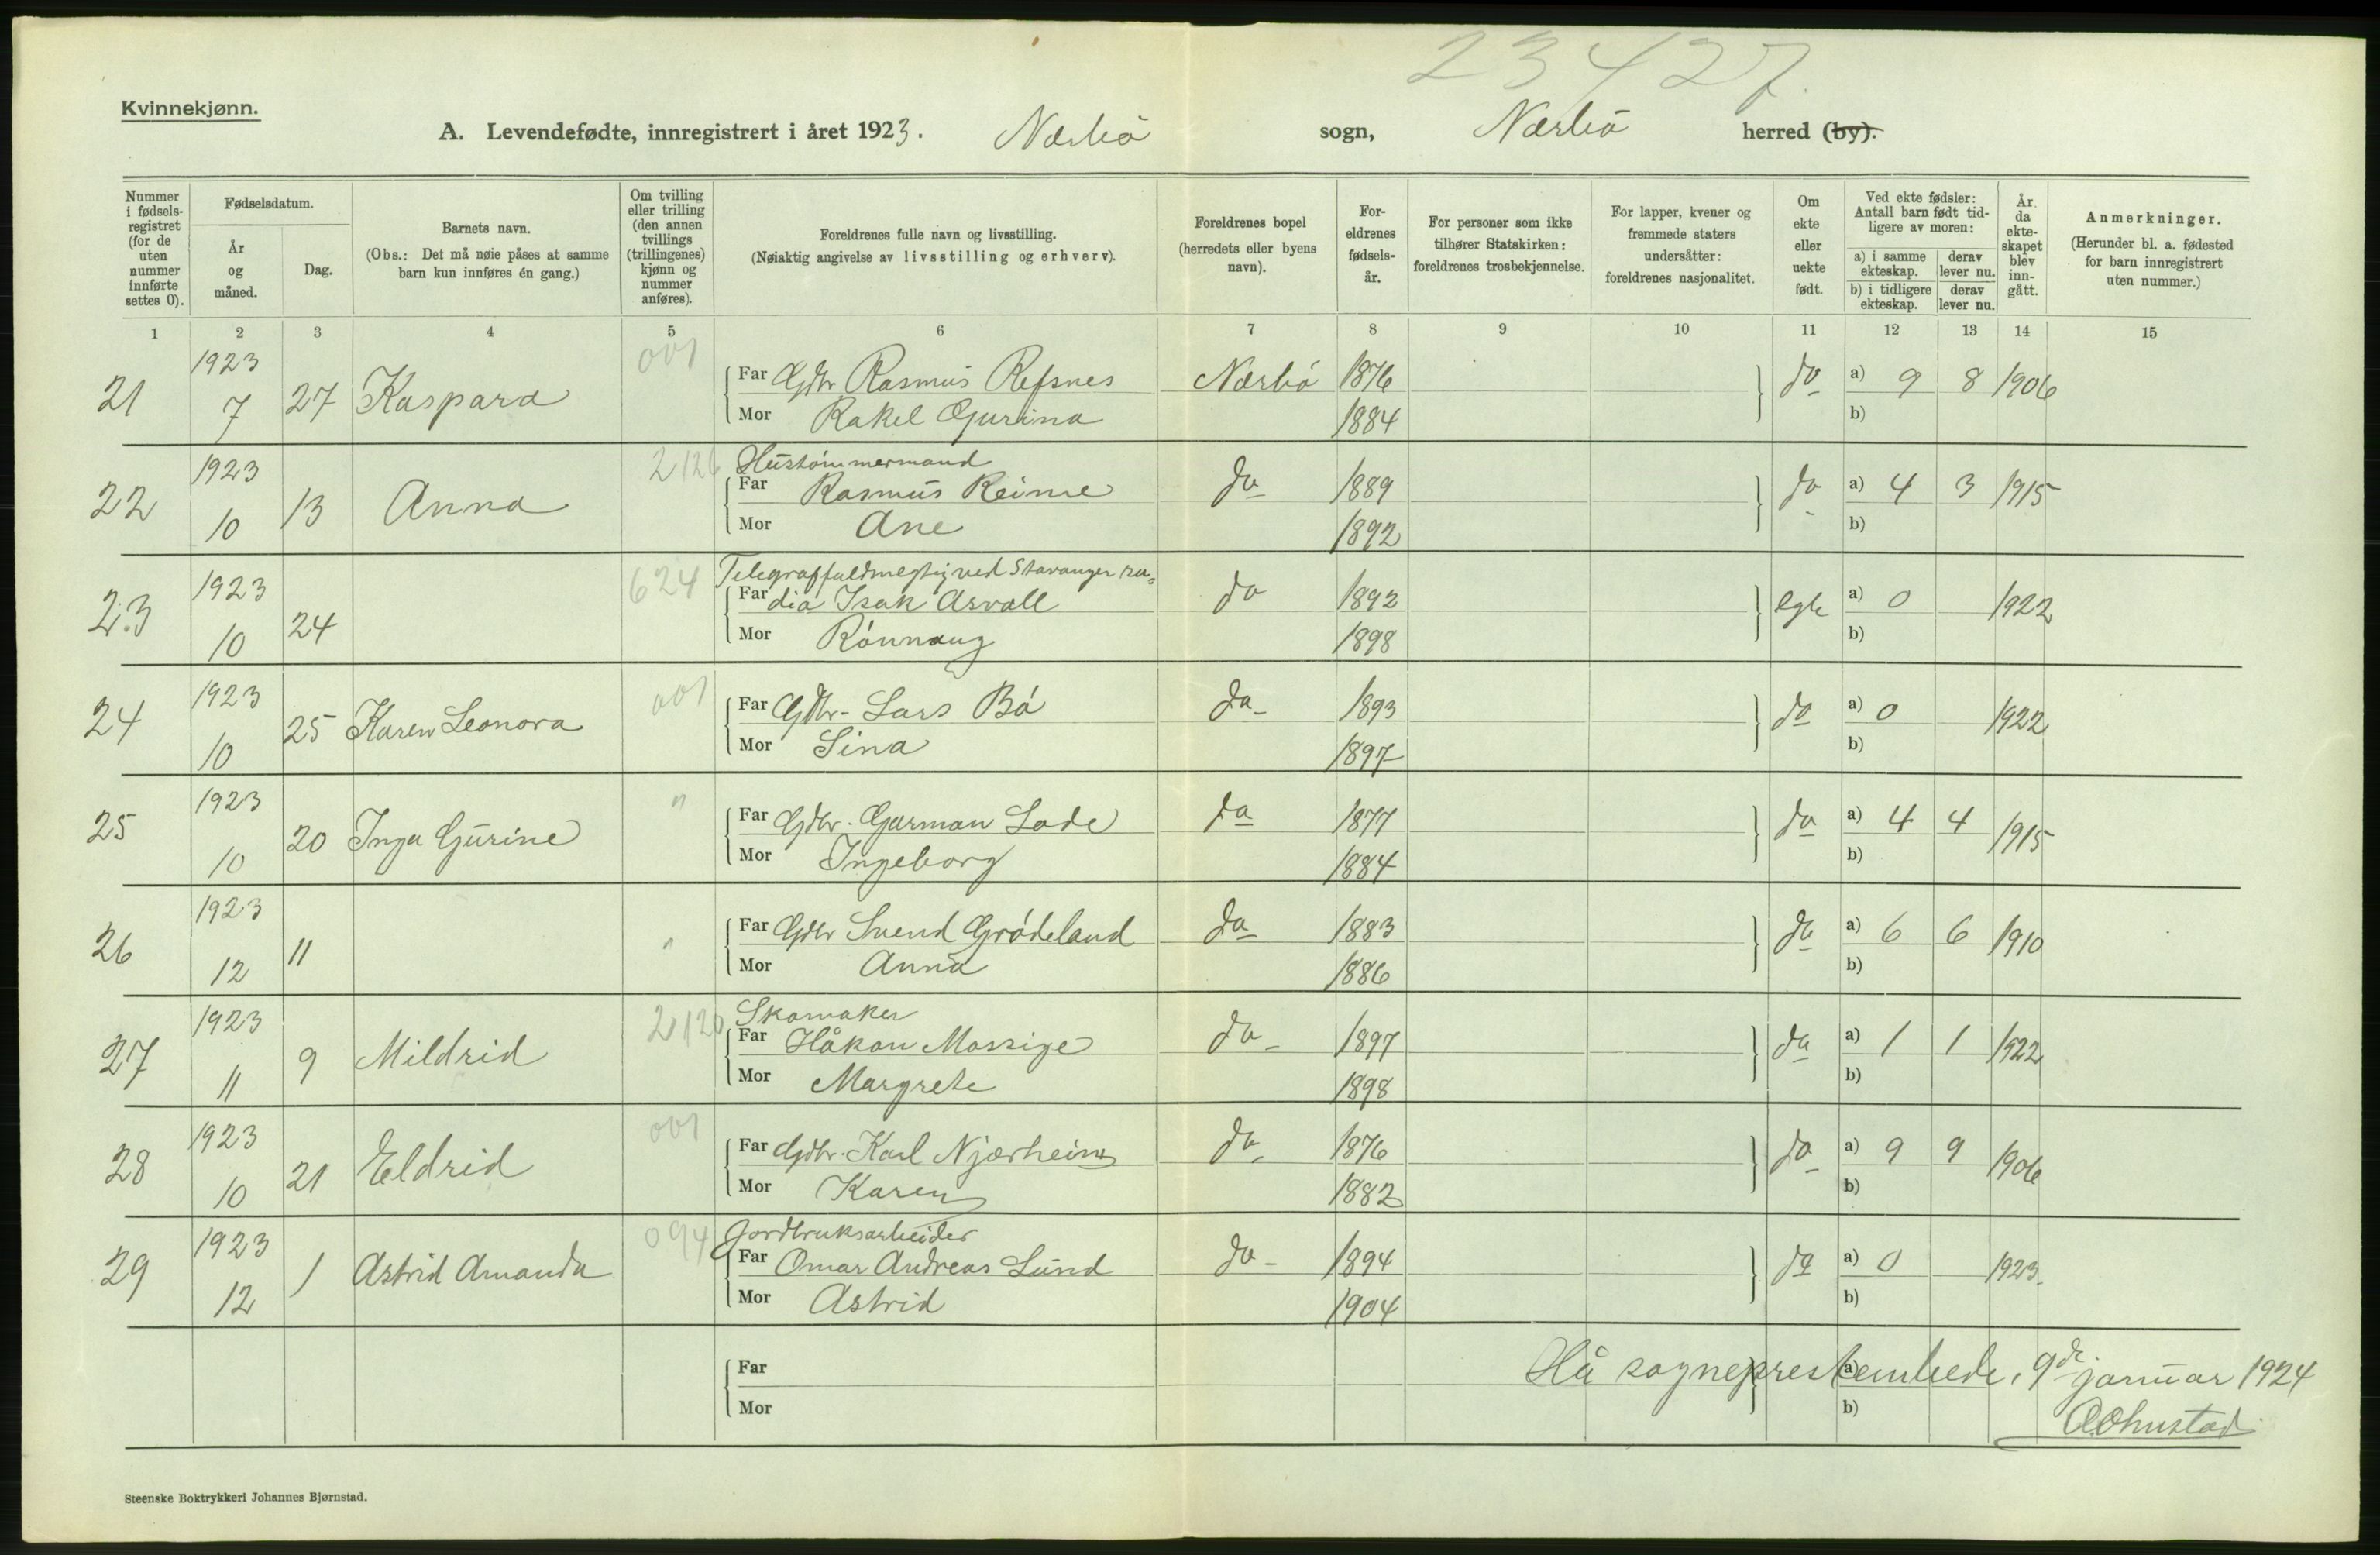 23427.
Kvinnekjønn.
A. Levendefødte, innregistrert i året 1923. Nærbö sogn, Nærbö herred (by).
Nummer i fødsels-registret (for de uten nummer innførte settes 0).
Fødselsdatum.
År og måned.
Dag.
Barnets navn.
(Obs.: Det må nøie påses at samme barn kun innføres én gang.)
Om tvilling eller trilling (den annen tvillings (trillingenes) kjønn og nummer anføres).
Foreldrenes fulle navn og livsstilling.
(Nøiaktig angivelse av livsstilling og erhverv).
Foreldrenes bopel
(herredets eller byens navn).
For-eldrenes fødsels-år.
For personer som ikke tilhører Statskirken: foreldrenes trosbekjennelse.
For lapper, kvener og fremmede staters undersåtter: foreldrenes nasjonalitet.
Om ekte eller uekte født.
Ved ekte fødsler: Antall barn født tid-ligere av moren:
a) i samme ekteskap.
derav lever nu.
b) i tidligere ekteskap.
derav lever nu.
År da ekte-skapet blev inn-gått.
Anmerkninger.
(Herunder bl. a. fødested for barn innregistrert uten nummer.)
1 2 3 4 5 6 7 8 9 10 11 12 13 14 15
21 1923 7 27 Kaspara 001 Far Gdbr Rasmus Refsnes Nærbö 1876 do a) 9 8 1906
Mor Rakel Gurina 1884 b)
22 1923 10 13 Anna 2126 Hustömmermand
Far Rasmus Reime do 1889 do a) 4 3 1915
Mor Ane 1892 b)
23 1923 10 24 624 Telegraffuldmegtig ved Stavanger ra=
Far dio Isak Arvall do 1892 egte a) 0 1922
Mor Rönnaug 1898 b)
24 1923 10 25 Karen Leonora 001 Far Gdbr- Lars Bö do- 1893 do a) 0 1922
Mor Sina 1897 b)
25 1923 10 20 Inga Gurine " Far Gdbr. Garman Lode do 1877 do a) 4 4 1915
Mor Ingeborg 1884 b)
26 1923 12 11 " Far Gdbr Svend Grödeland do 1883 do a) 6 6 1910
Mor Anna 1886 b)
27 1923 11 9 Mildrid 2120 Skomaker
Far Håkon Mossige do- 1897 do a) 1 1 1922
Mor Margrete 1898 b)
28 1923 10 21 Eldrid 001 Far Gdbr. Karl Njærheim do- 1876 do a) 9 9 1906
Mor Karen 1882 b)
29 1923 12 1 Astrid Amanda 094 Jordbruksarbeider
Far Omar Andreas Lund do- 1894 do a) 0 1923.
Mor Astrid 1904 b)
Far a)
Mor b)
Hå sogneprestembede, 9de januar 1924
Steenske Boktrykkeri Johannes Bjørnstad.